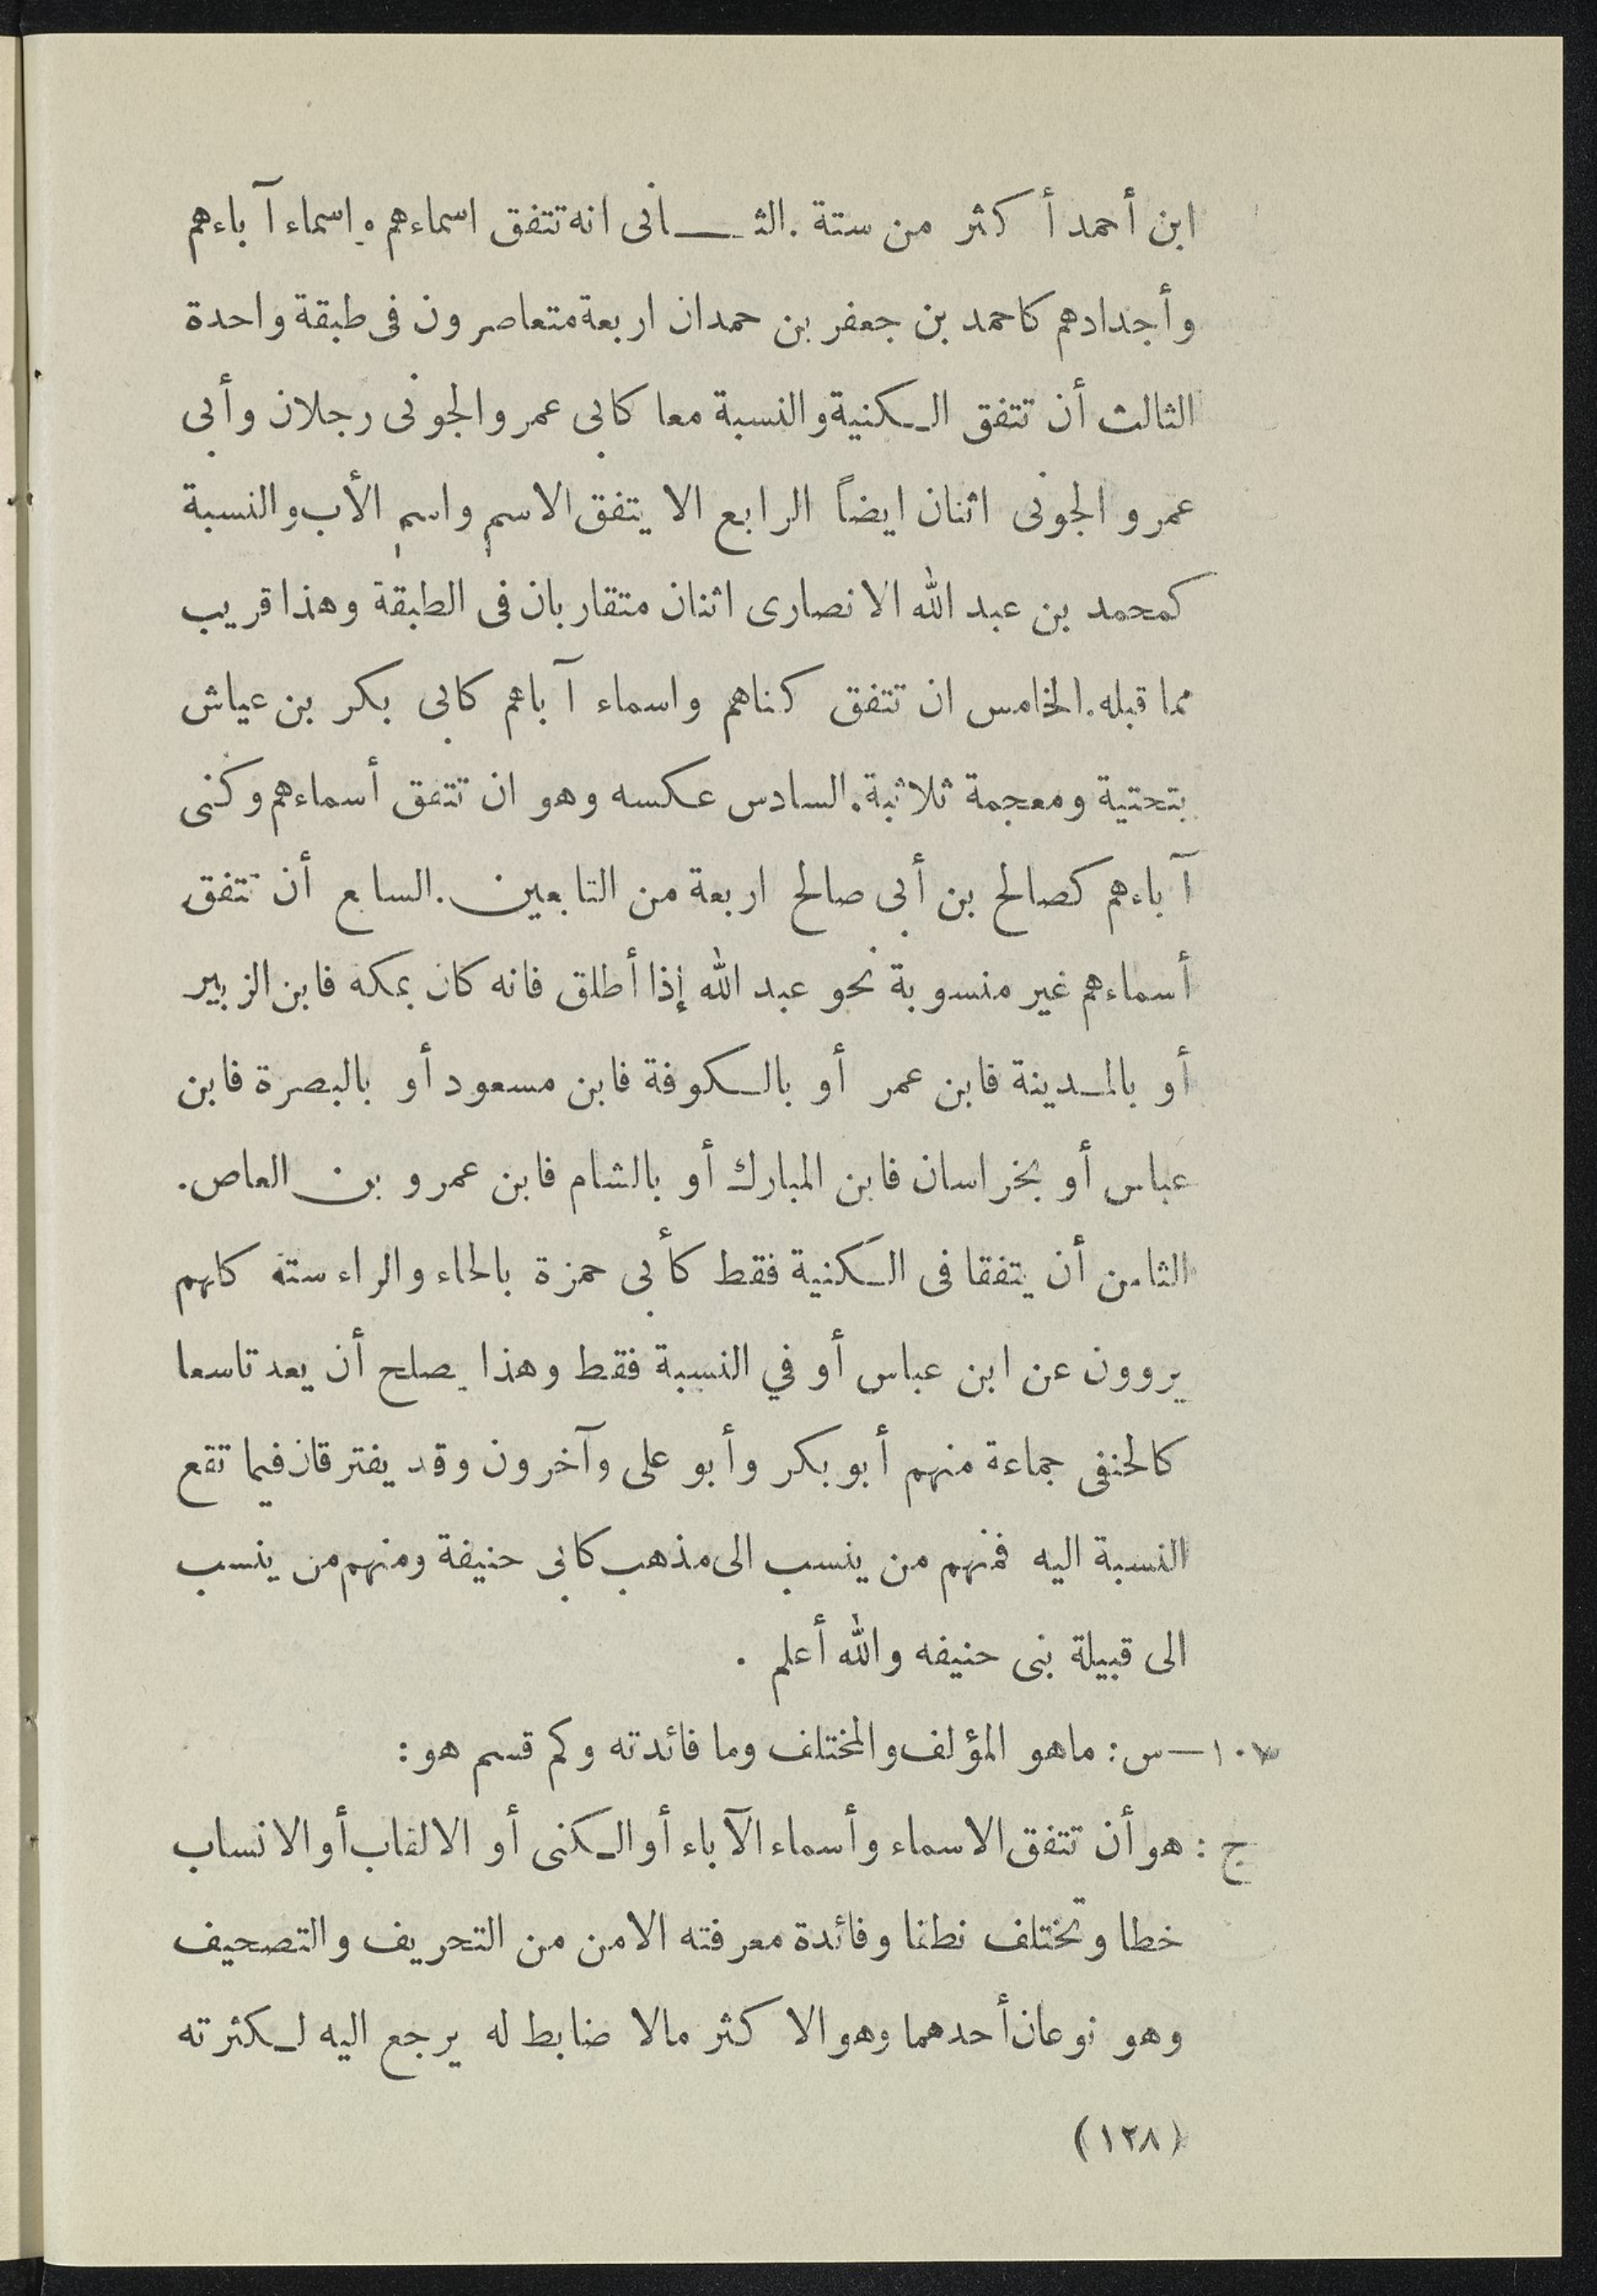 ابن أحمد أكثر من ستة . الثـــانى انه تتفق اسماءهم واسماء آباءهم
وأجدادهم كاحمد بن جعفر بن حمدان اربعة متعاصرون فى طبقة واحدة
الثالث أن تتفق الـكنية والنسبة معا كابى عمر والجونى رجلان وأبى
عمر و الجونى اثنان ايضاً الرابع الا يتفق الاسم واسم الأب والنسبة
كمحمد بن عبد الله الانصارى اثنان متقاربان فى الطبقة وهذا قريب
مما قبله . الخامس ان تتفق كناهم واسماء آباهم كابى بكر بن عياش
بتحتية ومعجمة ثلاثبة . السادس عكسه وهو ان تتفق أسماءهم وكنى
آباءهم كصالح بن أبى صالح اربعة من التابعين . السابع أن تتفق
أسماءهم غير منسوبة نحو عبد الله إذا أطلق فانه كان بمكه فابن الزبير
أو بالمـدينة فابن عمر أو بالـكوفة فابن مسعود أو بالبصرة فابن
عباس أو بخراسان فابن المبارك أو بالشام فابن عمرو بن العاص .
الثامن أن يتفقا فى الـكنية فقط كأبى حمزة بالحاء والراء سته كلهم
يروون عن ابن عباس أو في النسبة فقط وهذا يصلح أن يعد تاسعا
كالحنفى جماءة منهم أبو بكر وأبو على وآخرون وقد يفترقان فيما تقع
النسبة اليه فمنهم من ينسب الى مذهب كابى حنيفة ومنهم من ينسب
الى قبيلة بنى حنيفه والله أعلم .
١٠٧ — س : ماهو المؤلف والمختلف وما فائدته وكم قسم هو :
ج : هو أن تتفق الاسماء وأسماء الآباء أو الـكنى أو الالقاب أو الانساب
خطا وتختلف نطقا وفائدة معرفته الامن من التحريف والتصحيف
وهو نوعان أحدهما وهو الاكثر مالا ضابط له يرجع اليه لـكثرته
(١٢٨)